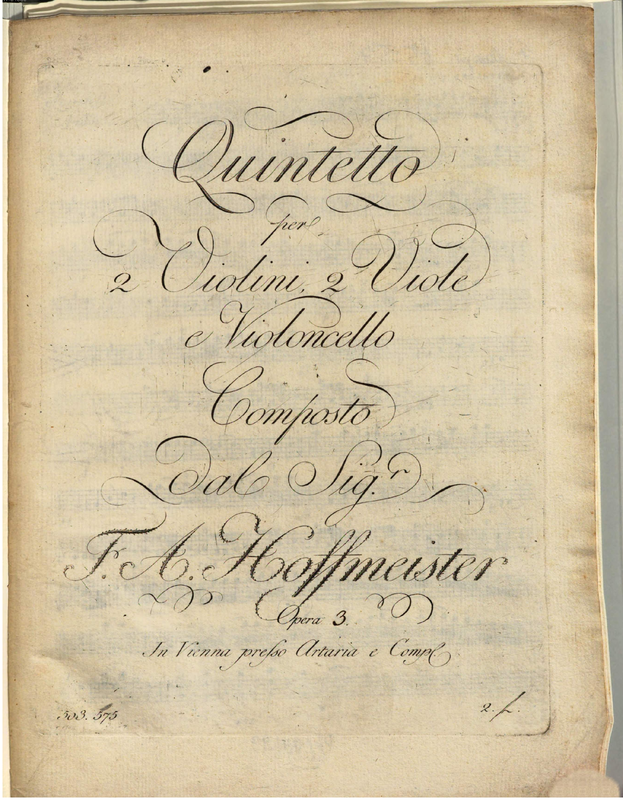 Quintetto
per
2 Violini, 2 Viole
e Violoncello
Composto
dal Sig.r
F. A. Hoffmeister
Opera 3.
In Vienna presso Artaria e Comp.
503. 575
2. f.